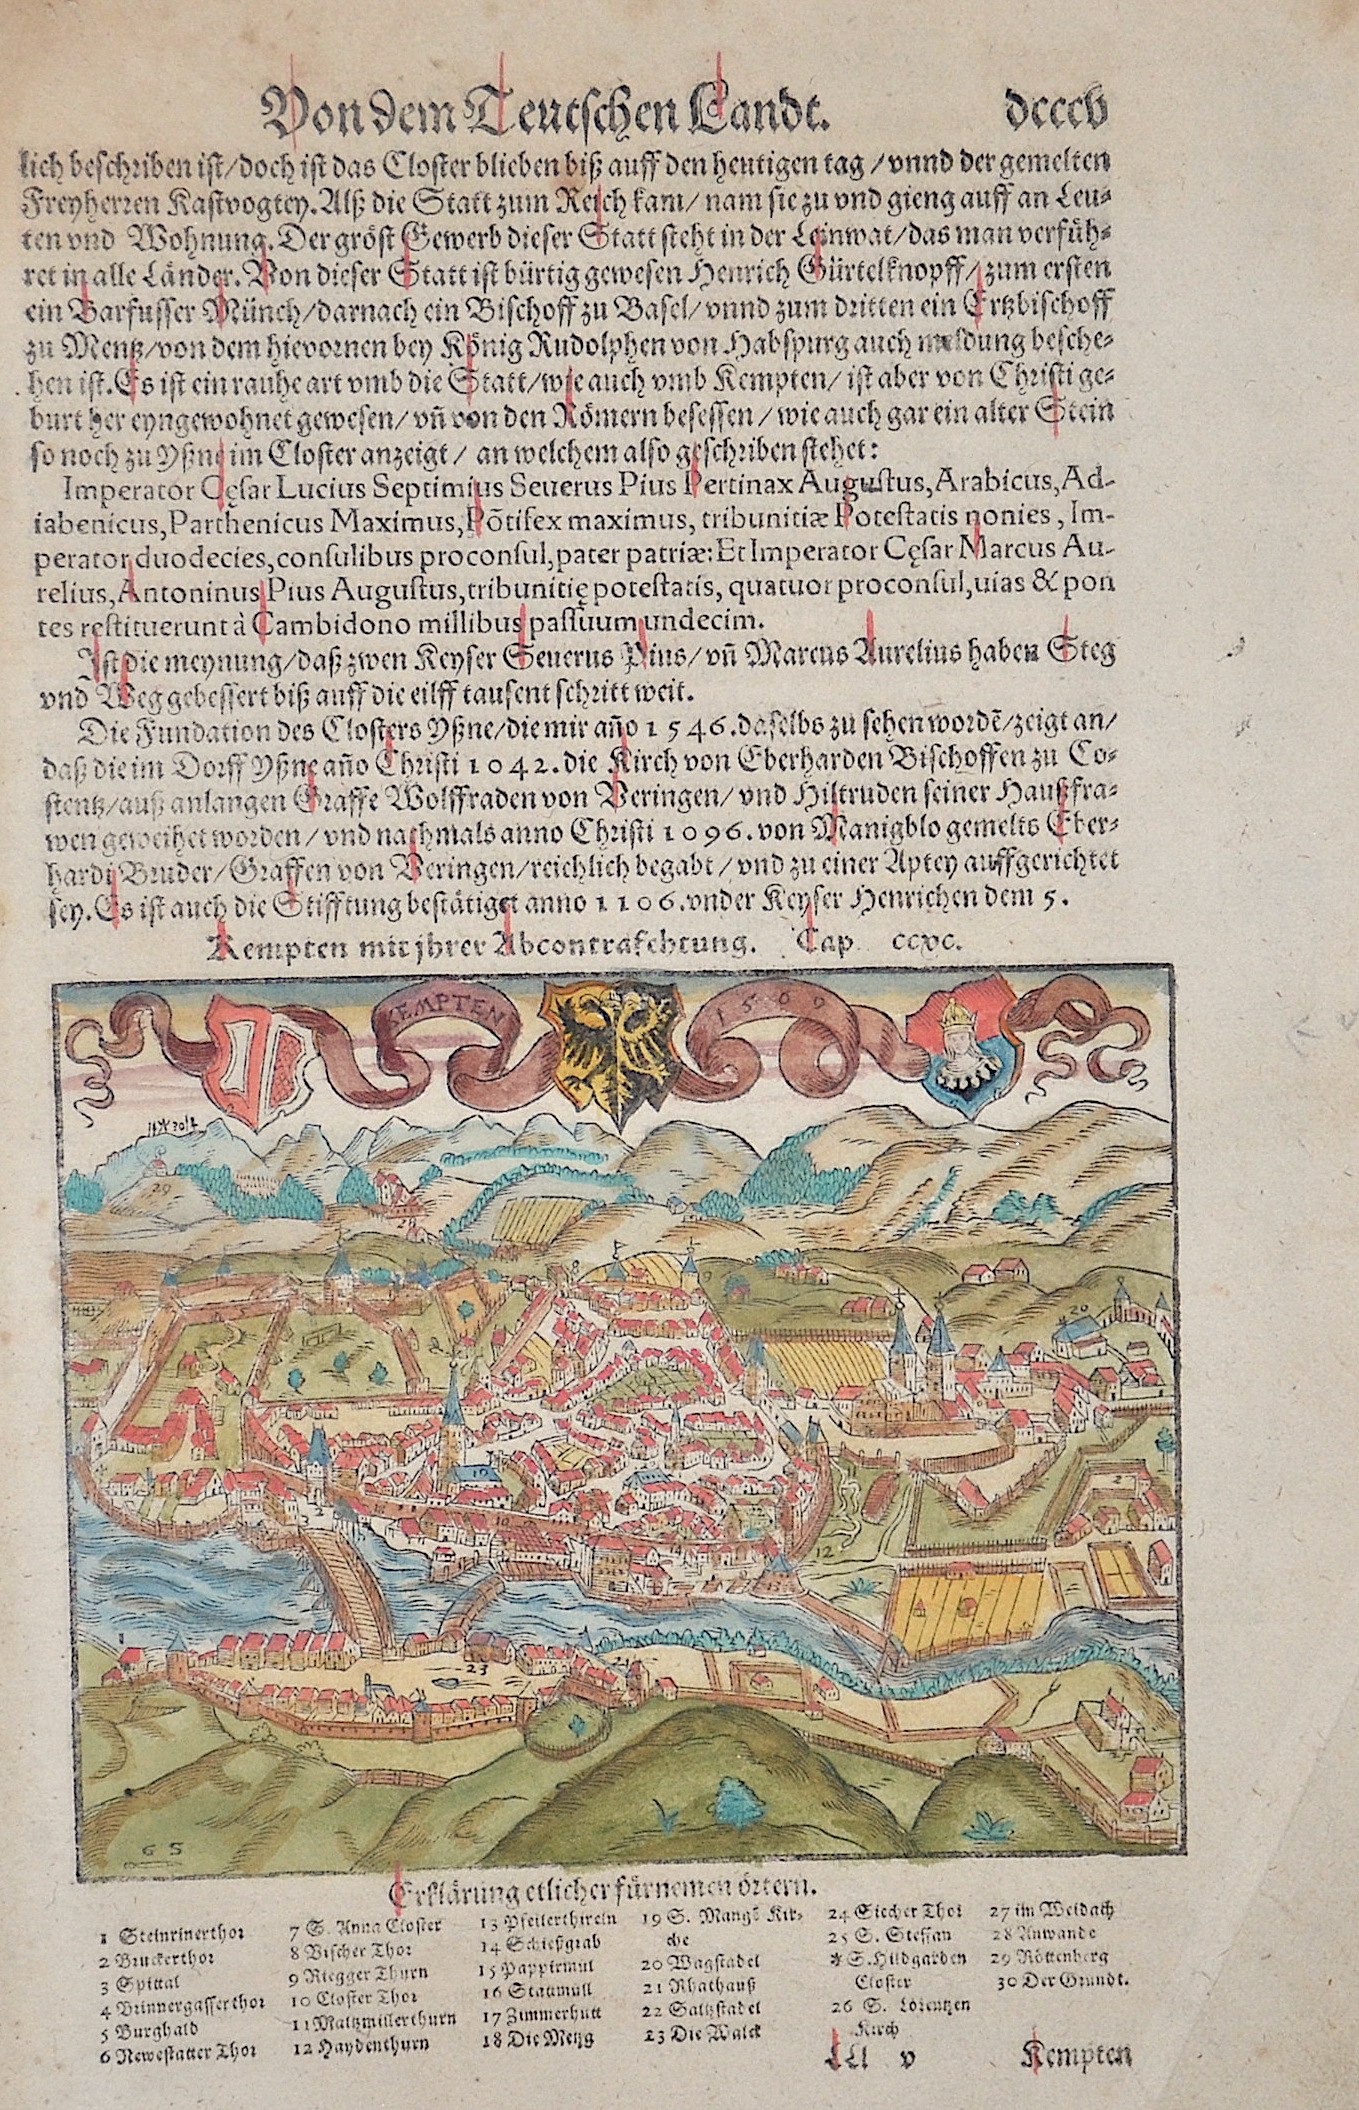 Von dem Teutschen Landt. dcccv
lich beschriben ist/doch ist das Closter blieben biß auff den heutigen tag/vnnd der gemelten
Freyherren Kastvogtey. Alß die Statt zum Reich kam/ nam sie zu vnd gieng auff an Leu-
ten vnd Wohnung. Der gröst Gewerb dieser Statt steht in der Leinwat/das man verfüh-
ret in alle Länder. Von dieser Statt ist bürtig gewesen Henrich Gürtelknopff/zum ersten
ein Barfusser Münch/darnach ein Bischoff zu Basel/vnnd zum dritten ein Ertzbischoff
zu Mentz/von dem hievornen bey König Rudolphen von Habspurg auch meldung besche-
hen ist. Es ist ein rauhe art vmb die Statt/wie auch vmb Kempten/ ist aber von Christi ge-
burt her eyngewohnet gewesen/ vñ von den Römern besessen/ wie auch gar ein alter Stein
so noch zu Yßne im Closter anzeigt/ an welchem also geschriben stehet:
Imperator Cęsar Lucius Septimius Seuerus Pius Pertinax Augustus, Arabicus, Ad-
iabenicus, Parthenicus Maximus, Põtifex maximus, tribunitiæ Potestatis nonies, Im-
perator duodecies, consulibus proconsul, pater patriæ: Et Imperator Cęsar Marcus Au-
relius, Antoninus Pius Augustus, tribunitię potestatis, quatuor proconsul, uias & pon
tes restituerunt à Cambidono millibus passuum undecim.
Ist die meynung/daß zwen Keyser Seuerus Pius/ vñ Marcus Aurelius haben Steg
vnd Weg gebessert biß auff die eilff tausent schritt weit.
Die Fundation des Closters Yßne/die mir año 1546. daselbs zu sehen wordẽ/zeigt an/
daß die im Dorff Yßne año Christi 1042. die Kirch von Eberharden Bischoffen zu Co-
stentz/auß anlangen Graffe Wolffraden von Veringen/ vnd Hiltruden seiner Haußfra-
wen geweihet worden/ vnd nachmals anno Christi 1096. von Manigblo gemelts Eber-
hardi Bruder/Graffen von Veringen/reichlich begabt/ vnd zu einer Aptey auffgerichtet
sey. Es ist auch die Stifftung bestätiget anno 1106. vnder Keyser Henrichen dem 5.
Kempten mit jhrer Abcontrafehtung. Cap. ccxc.
KEMPTEN 1569
29
28
8
9
5
20
10
2
3
2
10
14
12
13
1
23
21
65
Erklärung etlicher fürnemen örtern.
1 Steinrinerthor
2 Bruckerthor
3 Spittal
4 Brinnergasserthor
5 Burghald
6 Newestatter Thor
7 S. Anna Closter
8 Vischer Thor
9 Riegger Thurn
10 Closter Thor
11 Maltzmillerthurn
12 Haydenthurn
13 Pfeilerthireln
14 Schießgrab
15 Pappirmul
16 Stattmüll
17 Zimmerhutt
18 Die Metzg
19 S. Mangẽ Kir-
che
20 Wagstadel
21 Rhathauß
22 Saltzstadel
23 Die Walck
24 Siecher Thor
25 S. Steffan
* S. Hildgarden
Closter
26 S. Lorentzen
Kirch
27 im Weidach
28 Anwande
29 Röttenberg
30 Der Grundt.
LLl v Kempten